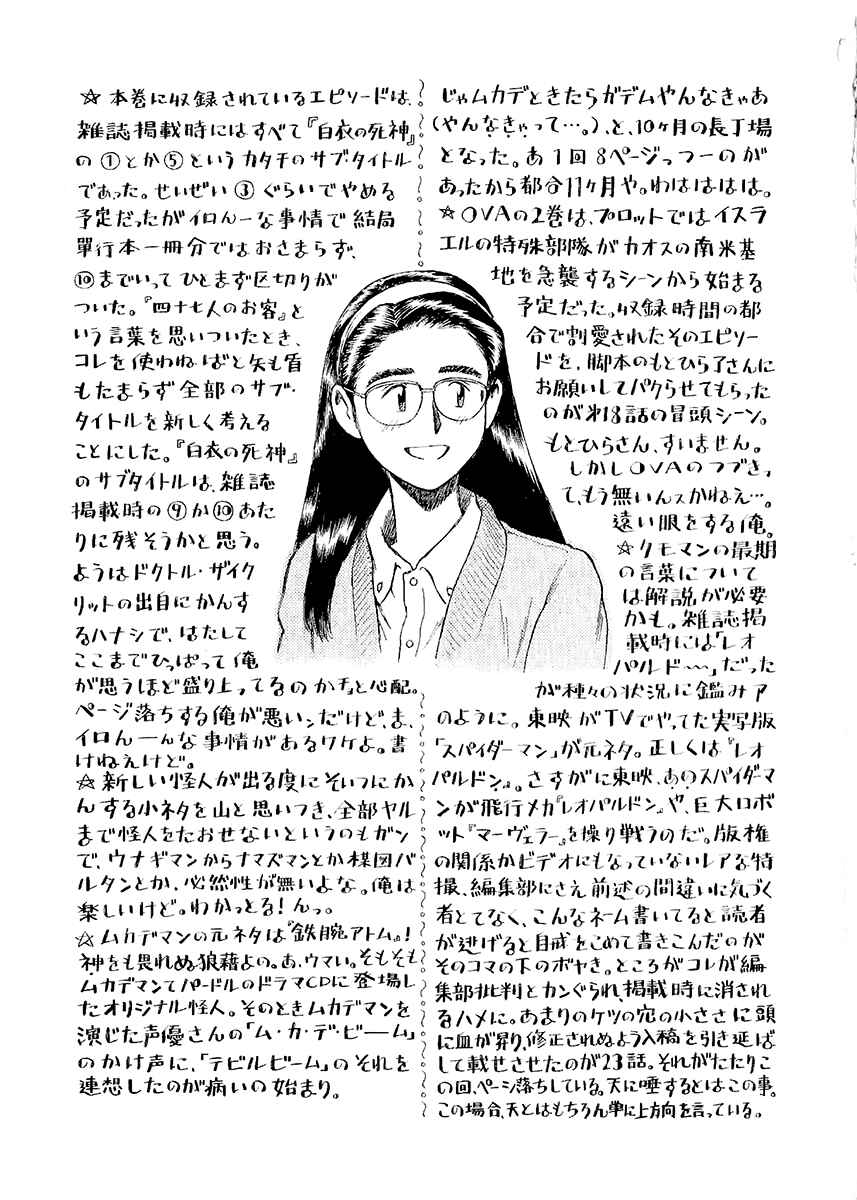 ☆本巻に収録されているエピソードは、
雑誌掲載時にはすべて『白衣の死神』
の①とか⑤というカタチのサブ・タイトル
であった。せいぜい③ぐらいでやめる
予定だったがイロんーな事情で結局
單行本一冊分ではおさまらず、
⑩までいってひとまず区切りが
ついた。『四十七人のお客』と
いう言葉を思いついたとき、
コレを使わねばと矢も盾
もたまらず全部のサブ・
タイトルを新しく考える
ことにした。『白衣の死神』
のサブタイトルは、雑誌
掲載時の⑨か⑩あた
りに残そうかと思う。
ようはドクトル・ザイク
リットの出自にかんす
るハナシで、はたして
ここまでひっぱって俺
が思うほど盛り上ってるのかチョと心配。
ページ落ちする俺が悪いンだけど、ま、
イロんーんな事情があるワケよ。書
けねえけど。
☆新しい怪人が出る度にそいつにか
んする小ネタを山と思いつき、全部ヤル
まで怪人をたおせないというのもガン
で、ウナギマンからナマズマンとか楳図バ
ルタンとか、必然性が無いよな。俺は
楽しいけど。わかっとる!んっ。
☆ムカデマンの元ネタは『鉄腕アトム』!
神をも畏れぬ狼藉よの。あ、ウマい。そもそも
ムカデマンてパードルのドラマCDに登場し
たオリジナル怪人。そのときムカデマンを
演じた声優さんの「ム・カ・デ・ビーム」
のかけ声に、「デビルビーム」のそれを
連想したのが病いの始まり。
じゃムカデときたらガデムやんなきゃあ
(やんなきゃって…。)、と、10ヶ月の長丁場
となった。あ1回8ページっつーのが
あったから都合11ヶ月や。わはははは。
☆OVAの2巻は、プロットではイスラ
エルの特殊部隊がカオスの南米基
地を急襲するシーンから始まる
予定だった。収録時間の都
合で割愛されたそのエピソー
ドを、脚本のもとひら了さんに
お願いしてパクらせてもらった
のが第18話の冒頭シーン。
もとひらさん、すいません。
しかしOVAのつづきっ
て、もう無いんスかねえ…。
遠い眼をする俺。
☆クモマンの最期
の言葉について
は解説が必要
かも。雑誌掲
載時には「レオ
パルドー〜」だった
が種々の状況に鑑みア
のように。東映がTVでやってた実写版
「スパイダーマン」が元ネタ。正しくは『レオ
パルドン』。さすがに東映、あのスパイダーマ
ンが飛行メカ『レオパルドン』や、巨大ロボ
ット『マーヴェラー』を操り戦うのだ。版権
の関係かビデオにもなっていないレアな特
撮、編集部にさえ前述の間違いに気づく
者とてなく、こんなネーム書いてると読者
が逃げると自戒をこめて書きこんだのが
そのコマの下のボヤき。ところがコレが編
集部批判とカンぐられ、掲載時に消され
るハメに。あまりのケツの穴の小ささに頭
に血が昇り、修正されぬよう入稿を引き延ば
して載せさせたのが23話。それがたたりこ
の回、ページ落ちしている。天に唾するとはこの事。
この場合、天とはもちろん単に上方向を言っている。